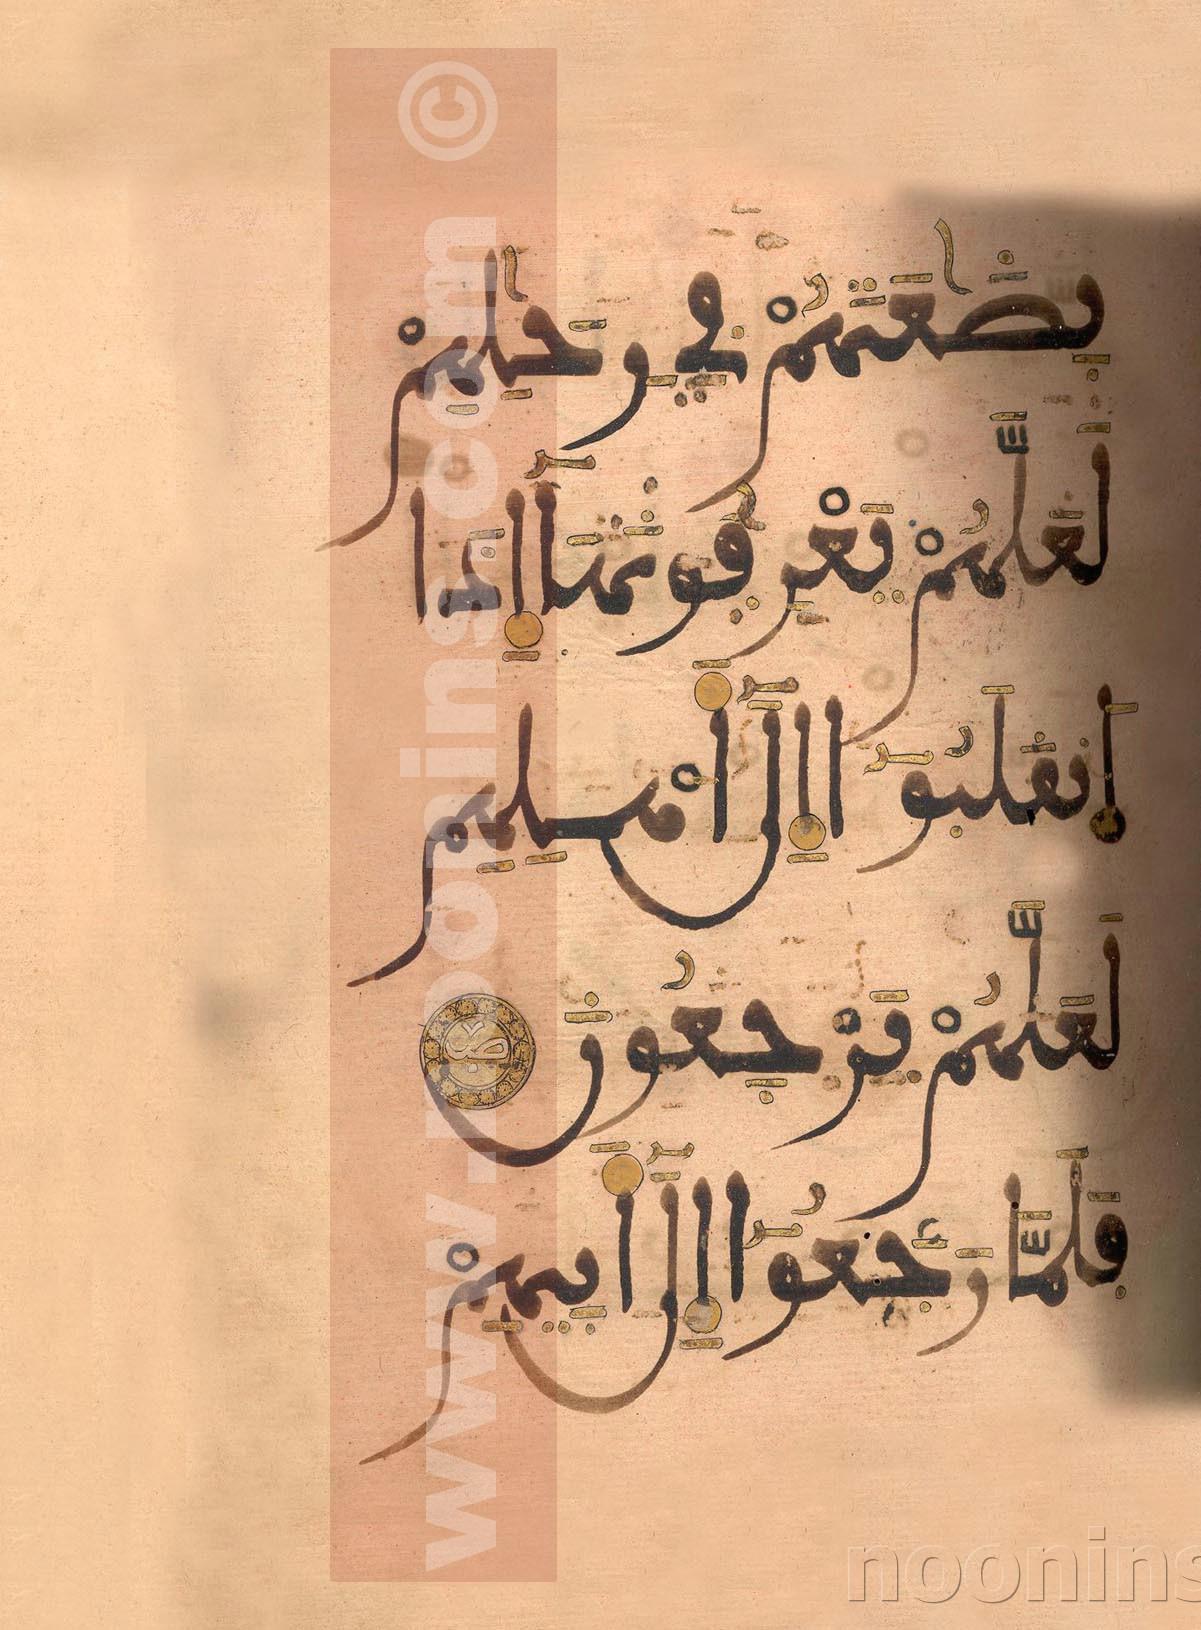 بِضَٰعَتَهُمْ فِي رِحَٰلِهِمْ
لَعَلَّهُمْ يَعْرِفُونَهَآ إِذَا
اَنقَلَبُوٓا إِلَىٰٓ أَهْلِهِمْ
لَعَلَّهُمْ يَرْجِعُونَ
فَلَمَّا رَجَعُوٓا إِلَىٰٓ أَبِيهِمْ
www.noonins.com ©
noonins